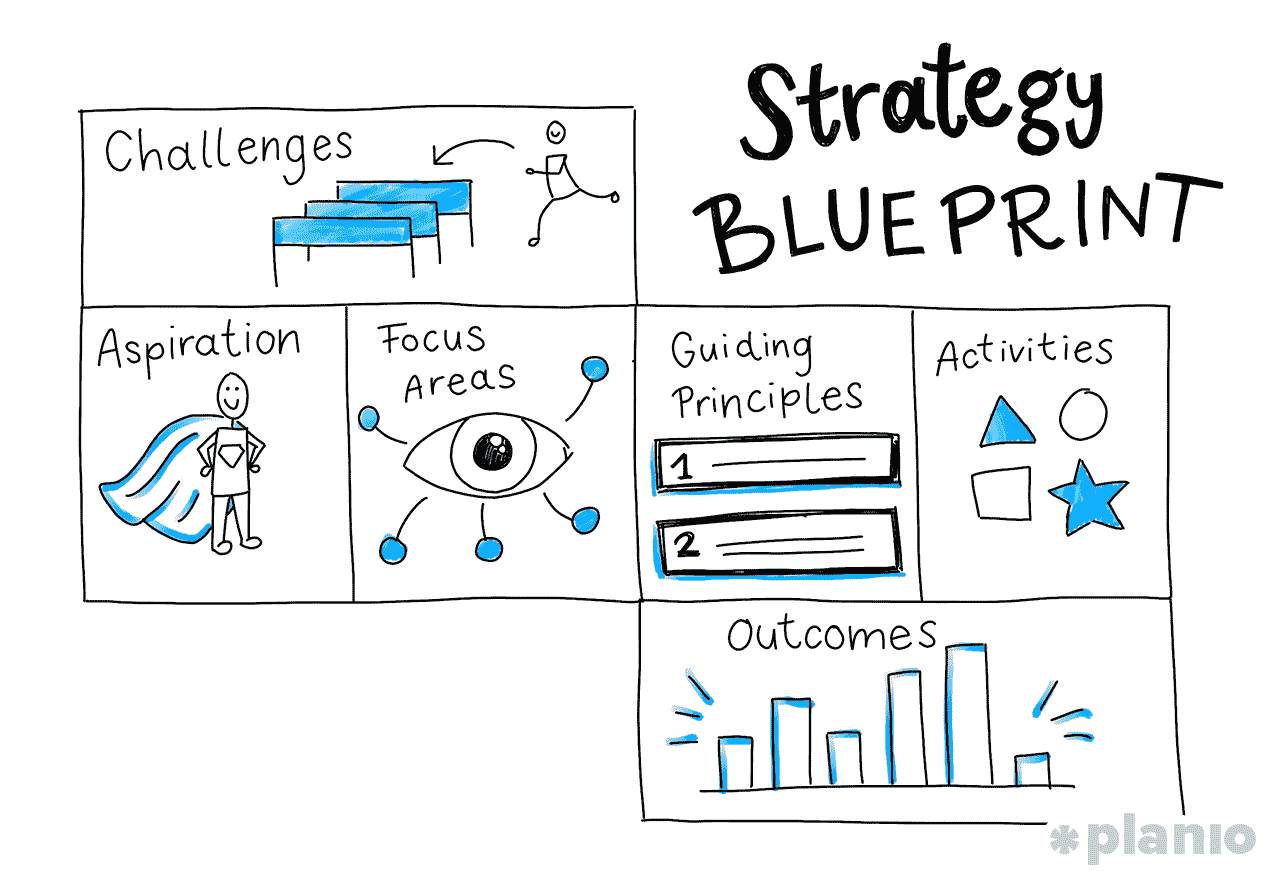 Strategy
BLUEPRINT
Challenges
Aspiration
Focus
Areas
Guiding
Principles
1
2
Activities
Outcomes
planio